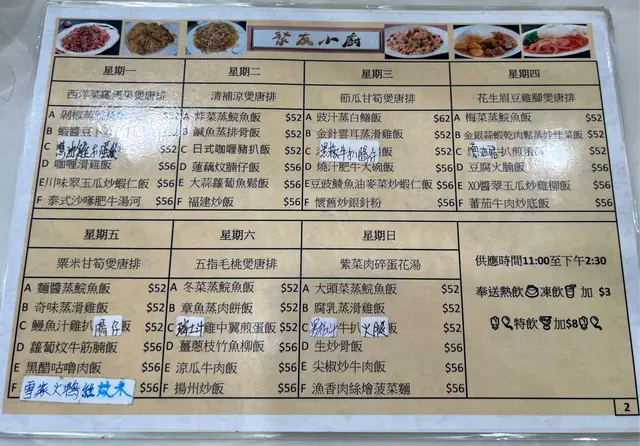 聚友小廚
星期一
西洋菜羅漢果煲唐排
A 剁椒蒸 飯 $52
B 蝦醬豆卜 飯 $52
C 飯 $52
D 咖喱滑雞飯 $56
E 川味翠玉瓜炒蝦仁飯 $56
F 泰式沙嗲肥牛湯河 $56
星期二
清補涼煲唐排
A 炸菜蒸鯇魚飯 $52
B 鹹魚蒸排骨飯 $52
C 日式咖喱豬扒飯 $52
D 蓮藕炆腩仔飯 $56
E 大蒜蘿蔔魚鬆飯 $56
F 福建炒飯 $56
星期三
節瓜甘筍煲唐排
A 豉汁蒸白鱔飯 $62
B 金針雲耳蒸滑雞飯 $52
C 黑椒牛扒腸仔 $52
D 燒汁肥牛大碗飯 $56
E 豆豉鯪魚油麥菜炒蝦仁飯 $56
F 懷舊炒銀針粉 $56
星期四
花生眉豆雞腳煲唐排
A 梅菜蒸鯇魚飯 $52
B 金銀蒜蝦乾肉鬆蒸娃娃菜飯 $52
C 扒煎蛋飯 $52
D 豆腐火腩飯 $56
E XO醬翠玉瓜炒雞柳飯 $56
F 蕃茄牛肉炒底飯 $56
星期五
粟米甘筍煲唐排
A 麵醬蒸鯇魚飯 $52
B 奇味蒸滑雞飯 $52
C 鰻魚汁雞扒腸仔 $52
D 蘿蔔炆牛筋腩飯 $56
E 黑醋咕嚕肉飯 $56
F 雪菜火鴨絲炆米 $56
星期六
五指毛桃煲唐排
A 冬菜蒸鯇魚飯 $52
B 章魚蒸肉餅飯 $52
C 雞中翼煎蛋飯 $52
D 薑蔥枝竹魚柳飯 $56
E 涼瓜牛肉飯 $56
F 揚州炒飯 $56
星期日
紫菜肉碎蛋花湯
A 大頭菜蒸鯇魚飯 $52
B 腐乳蒸滑雞飯 $52
C 黑椒牛扒火腿 $52
D 生炒骨飯 $56
E 尖椒炒牛肉飯 $56
F 漁香肉絲燴菠菜麵 $56
供應時間11:00至下午2:30
奉送熱飲 凍飲 加 $3
特飲 加$8
2